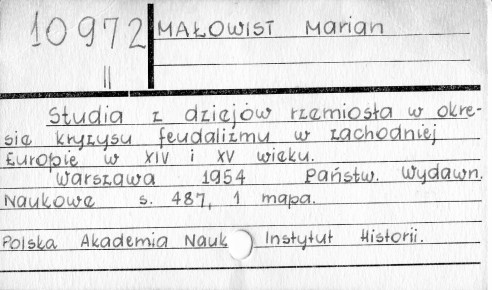 10972
II
MAŁOWIST Marian
Studia z dziejów rzemiosła w okre-
sie kryzysu feudalizmu w zachodniej
Europie w XIV i XV wieku.
Warszawa 1954 Państw. Wydawn.
Naukowe s. 487, 1 mapa.
Polska Akademia Nauk Instytut Historii.